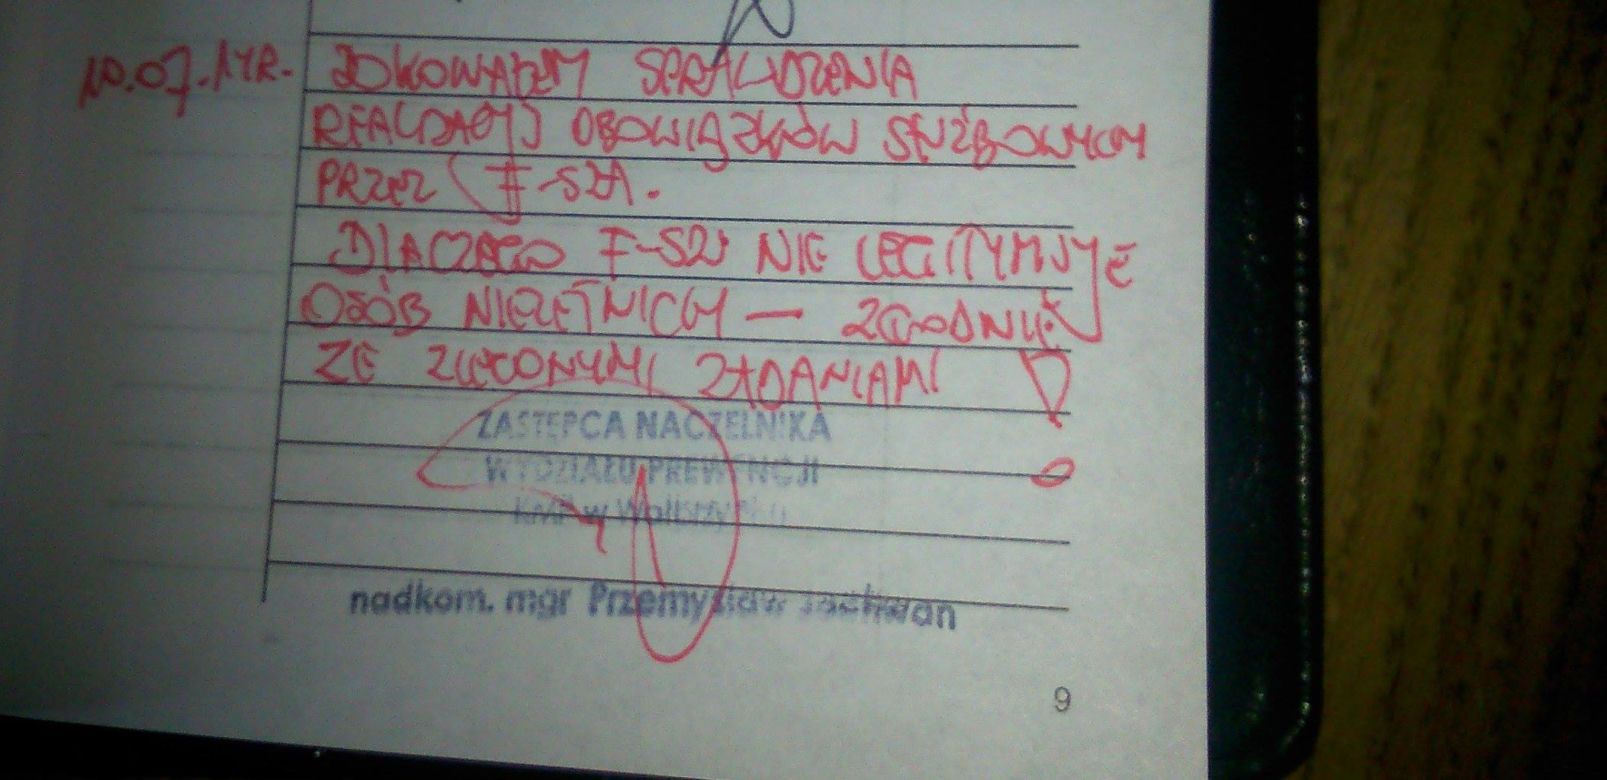 10.07.14R. DOKONAŁEM SPRAWDZENIA
REALIZACJI OBOWIĄZKÓW SŁUŻBOWYCH
PRZEZ F-SZA.
DLACZEGO F-SZ NIE LEGITYMUJE
OSÓB NIELETNICH — ZGODNIE
ZE ZLECONYMI ZADANIAMI !
ZASTĘPCA NACZELNIKA
WYDZIAŁU PREWENCJI
KMP w
nadkom. mgr Przemysław
9